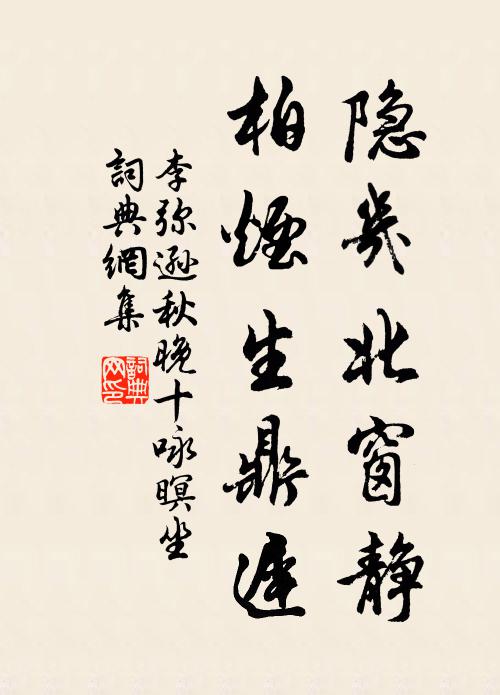 隐几北窗静
柏煙生鼎遲
李弥逊秋晚十咏暝坐
詞典網集
詞典网印